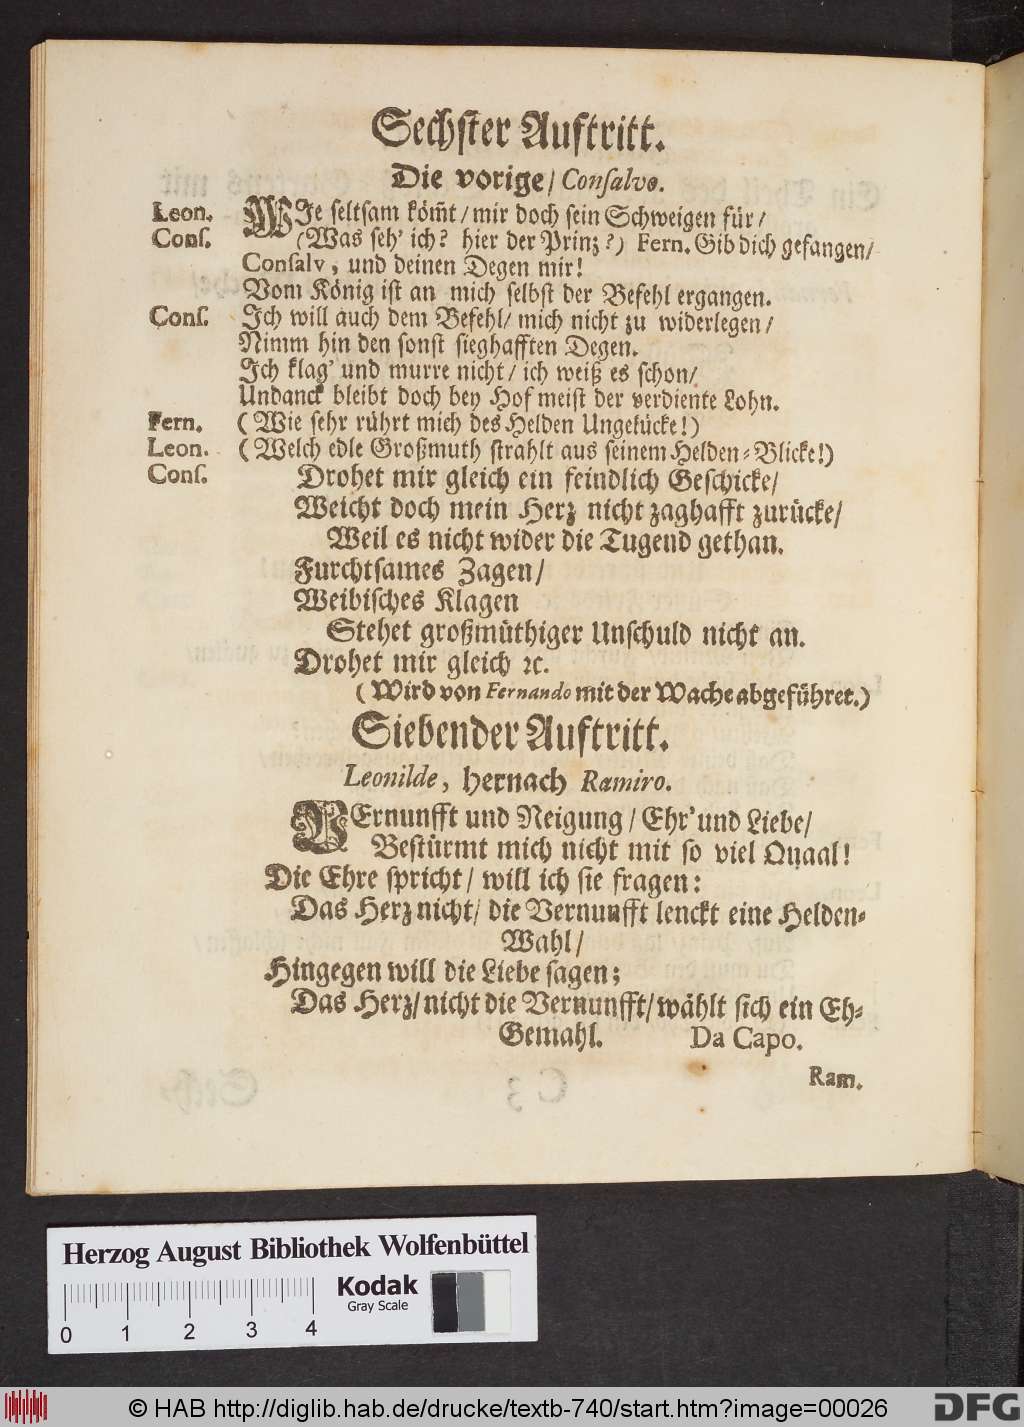 Sechster Auftritt.
Die vorige/ Consalvo.
Leon. WIe seltsam köm̃t/ mir doch sein Schweigen für/
Cons. (Was seh' ich? hier der Prinz?) Fern. Gib dich gefangen/
Consalv, und deinen Degen mir!
Vom König ist an mich selbst der Befehl ergangen.
Cons. Ich will auch dem Befehl/ mich nicht zu widerlegen/
Nimm hin den sonst sieghafften Degen.
Ich klag' und murre nicht/ ich weiß es schon/
Undanck bleibt doch bey Hof meist der verdiente Lohn.
Fern. (Wie sehr rührt mich des Helden Ungekücke!)
Leon. (Welch edle Großmuth strahlt aus seinem Helden-Blicke!)
Cons. Drohet mir gleich ein feindlich Geschicke/
Weicht doch mein Herz nicht zaghafft zurücke/
Weil es nicht wider die Tugend gethan.
Furchtsames Zagen/
Weibisches Klagen
Stehet großmüthiger Unschuld nicht an.
Drohet mir gleich ꝛc.
(Wird von Fernando mit der Wache abgeführet.)
Siebender Auftritt.
Leonilde, hernach Ramiro.
VErnunfft und Neigung/ Ehr' und Liebe/
Bestürmt mich nicht mit so viel Quaal!
Die Ehre spricht/ will ich sie fragen:
Das Herz nicht/ die Vernunfft lenckt eine Helden-
Wahl/
Hingegen will die Liebe sagen;
Das Herz/ nicht die Vernunfft/ wählt sich ein Eh-
Gemahl. Da Capo.
Ram.
Herzog August Bibliothek Wolfenbüttel
Kodak
Gray Scale
0 1 2 3 4
© HAB http://diglib.hab.de/drucke/textb-740/start.htm?image=00026
DFG